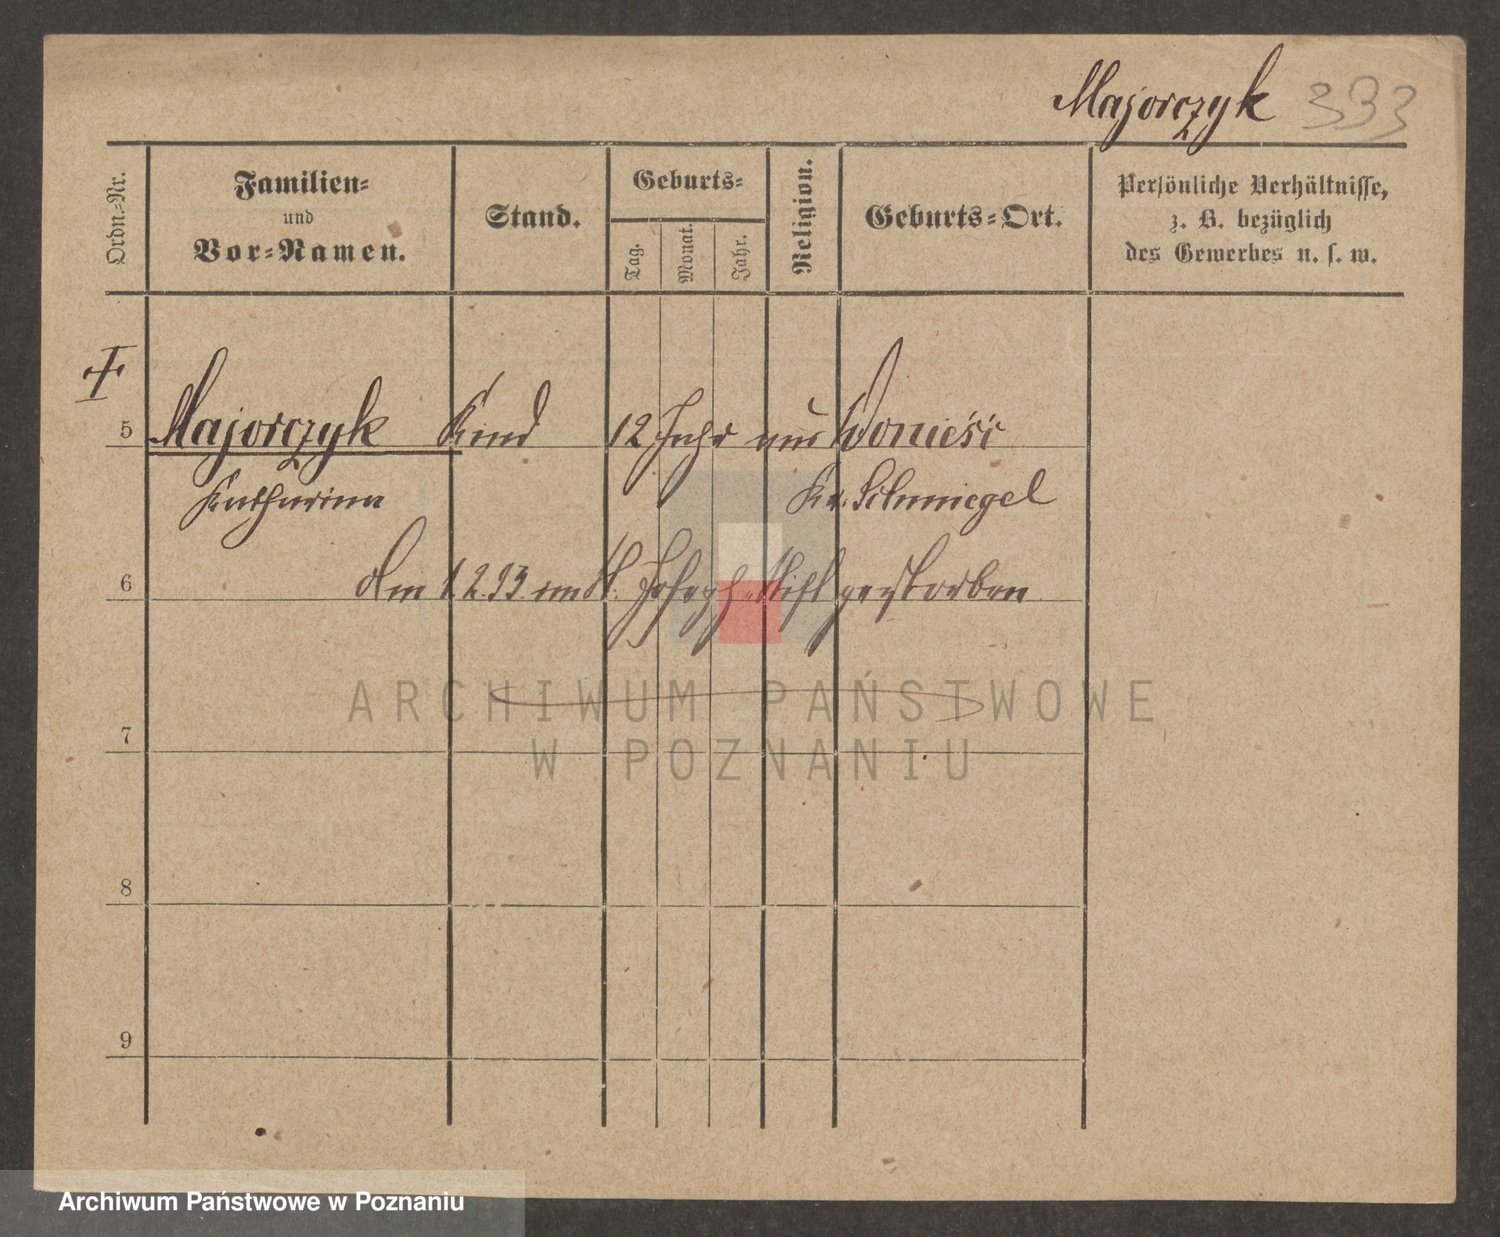 Majorczyk 333
Ordn.-Nr.
Familien-
und
Vor-Namen.
Stand.
Geburts-
Tag.
Monat.
Jahr.
Religion.
Geburts-Ort.
Persönliche Verhältnisse,
z. B. bezüglich
des Gewerbes u. s. w.
5 Majorczyk Kind 12 Jahr aus Woniesć
Katharina Kr. Schmiegel
6 Am 1.2.93. im St. Joseph-Stift gestorben
ARCHIWUM PAŃSTWOWE
7
W POZNANIU
8
9
Archiwum Państwowe w Poznaniu